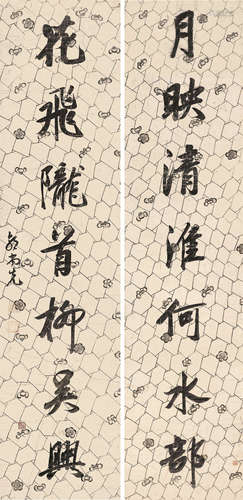 月映清淮何水部
花飛隴首柳吳興
鄭尚先